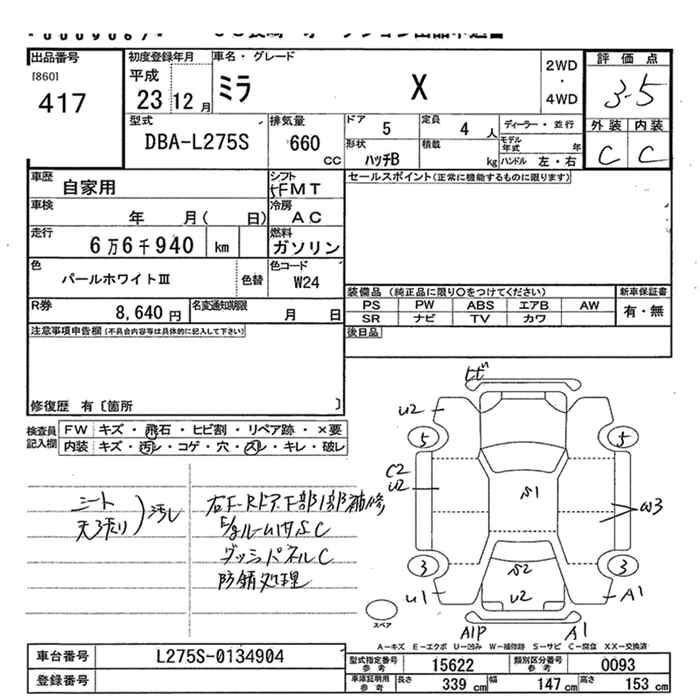 出品番号
[860]
417
初度登録年月
平成
23 12 月
車名・グレード
ミラ X
2WD
・
4WD
評価点
3.5
外装 内装
C C
型式
DBA-L275S
排気量
660
CC
ドア
5
定員
4 人
ディーラー・並行
形状
ハッチB
積載
kg
モデル年式 年
ハンドル 左・右
車歴
自家用
シフト
5FMT
セールスポイント(正常に機能するものに限ります)
車検
年 月( 日)
冷房
AC
走行
6万6千940 km
燃料
ガソリン
色
パールホワイトⅢ
色替
色コード
W24
装備品 (純正品に限り○をつけてください)
新車保証書
PS PW ABS エアB AW
有・無
SR ナビ TV カワ
R券
8,640 円
名変通知期限
月 日
後日品
注意事項申告欄(不具合内容等は具体的に記入して下さい)
修復歴 有〔箇所 〕
検査員
記入欄
FW キズ・飛石・ヒビ割・リペア跡・×要
内装 キズ・汚レ・コゲ・穴・スレ・キレ・破レ
シート
天張り
汚レ
右F-Rドア下部1部補修
E/gルーム内S.C
ダッシュパネルC
防錆処理
ヒビ
U2
5 5
C2
U2
S1
W3
3 3
S2
U2
U1 A1
A1P A1
スペア
A-キズ E-エクボ U-凹み W-補修跡 S-サビ C-腐食 XX-交換済
車台番号
L275S-0134904
登録番号
型式指定番号
参考
15622
類別区分番号
参考
0093
車庫証明用
参考
長さ 339 cm 幅 147 cm 高さ 153 cm